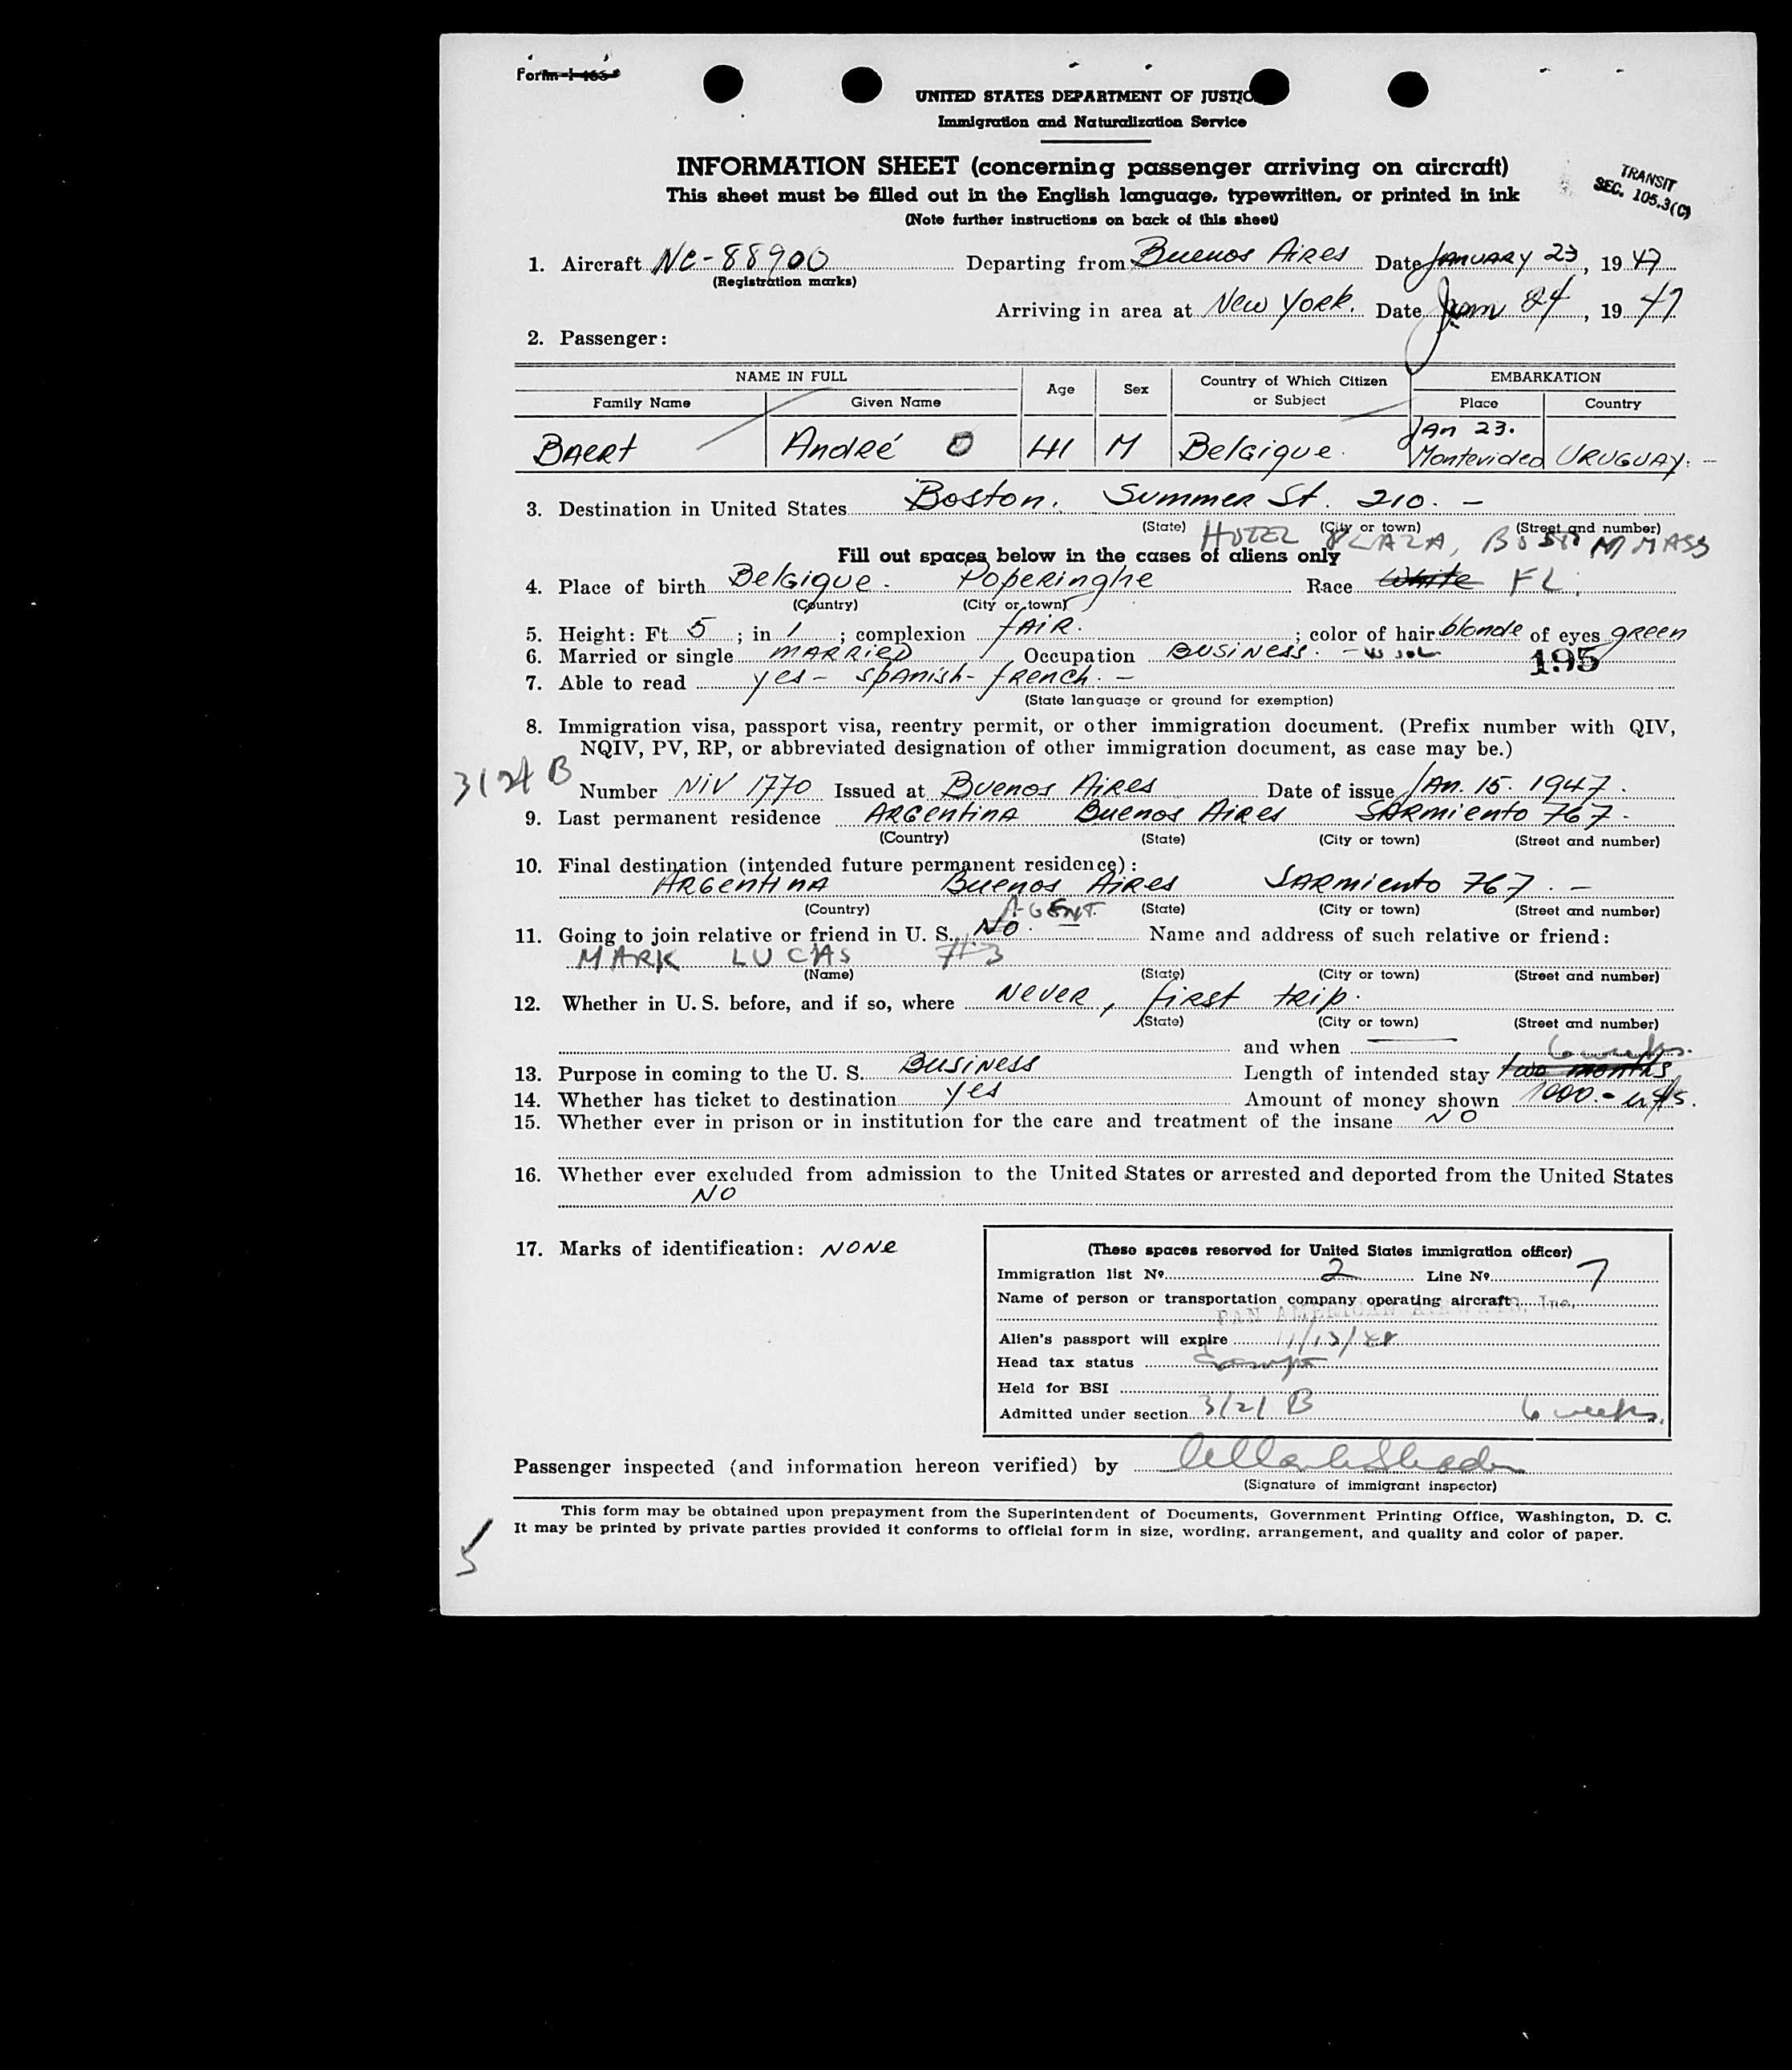 Form I-466
UNITED STATES DEPARTMENT OF JUSTIC
Immigration and Naturalization Service
INFORMATION SHEET (concerning passenger arriving on aircraft)
This sheet must be filled out in the English language, typewritten, or printed in ink
(Note further instructions on back of this sheet)
TRANSIT
SEC. 105.3(C)
1. Aircraft NC-88900 Departing from Buenos Aires Date January 23, 19 47
(Registration marks)
Arriving in area at New York. Date Jan 24, 19 47
2. Passenger:
NAME IN FULL Age Sex Country of Which Citizen or Subject EMBARKATION
Family Name Given Name Place Country
Jan 23.
Baert André 0 41 M Belgique. Montevideo Uruguay. -
3. Destination in United States Boston. Summer St. 210. -
(State) (City or town) (Street and number)
HOTEL PLAZA, BOSTON MASS
Fill out spaces below in the cases of aliens only
4. Place of birth Belgique. Poperinghe Race White FL.
(Country) (City or town)
5. Height: Ft. 5; in 1; complexion fair.; color of hair blonde of eyes green
6. Married or single married Occupation Business. - wool 195
7. Able to read yes - spanish - french. -
(State language or ground for exemption)
8. Immigration visa, passport visa, reentry permit, or other immigration document. (Prefix number with QIV,
NQIV, PV, RP, or abbreviated designation of other immigration document, as case may be.)
3(2) B
Number NIV 1770 Issued at Buenos Aires Date of issue Jan. 15. 1947.
9. Last permanent residence Argentina Buenos Aires Sarmiento 767.
(Country) (State) (City or town) (Street and number)
10. Final destination (intended future permanent residence):
Argentina Buenos Aires Sarmiento 767. -
(Country) (State) (City or town) (Street and number)
AGENT.
11. Going to join relative or friend in U. S. No. Name and address of such relative or friend:
MARK LUCAS #3
(Name) (State) (City or town) (Street and number)
12. Whether in U. S. before, and if so, where never, first trip.
(State) (City or town) (Street and number)
and when 6 weeks.
13. Purpose in coming to the U. S. Business Length of intended stay two months
14. Whether has ticket to destination yes Amount of money shown 1000.-
15. Whether ever in prison or in institution for the care and treatment of the insane NO
16. Whether ever excluded from admission to the United States or arrested and deported from the United States
NO
17. Marks of identification: none
(These spaces reserved for United States immigration officer)
Immigration list No. 2 Line No. 7
Name of person or transportation company operating aircraft
PAN AMERICAN AIRWAYS, Inc.
Alien's passport will expire 11/13/48
Head tax status Exempt
Held for BSI
Admitted under section 3/2/ B 6 weeks.
Passenger inspected (and information hereon verified) by
(Signature of immigrant inspector)
This form may be obtained upon prepayment from the Superintendent of Documents, Government Printing Office, Washington, D. C.
It may be printed by private parties provided it conforms to official form in size, wording, arrangement, and quality and color of paper.